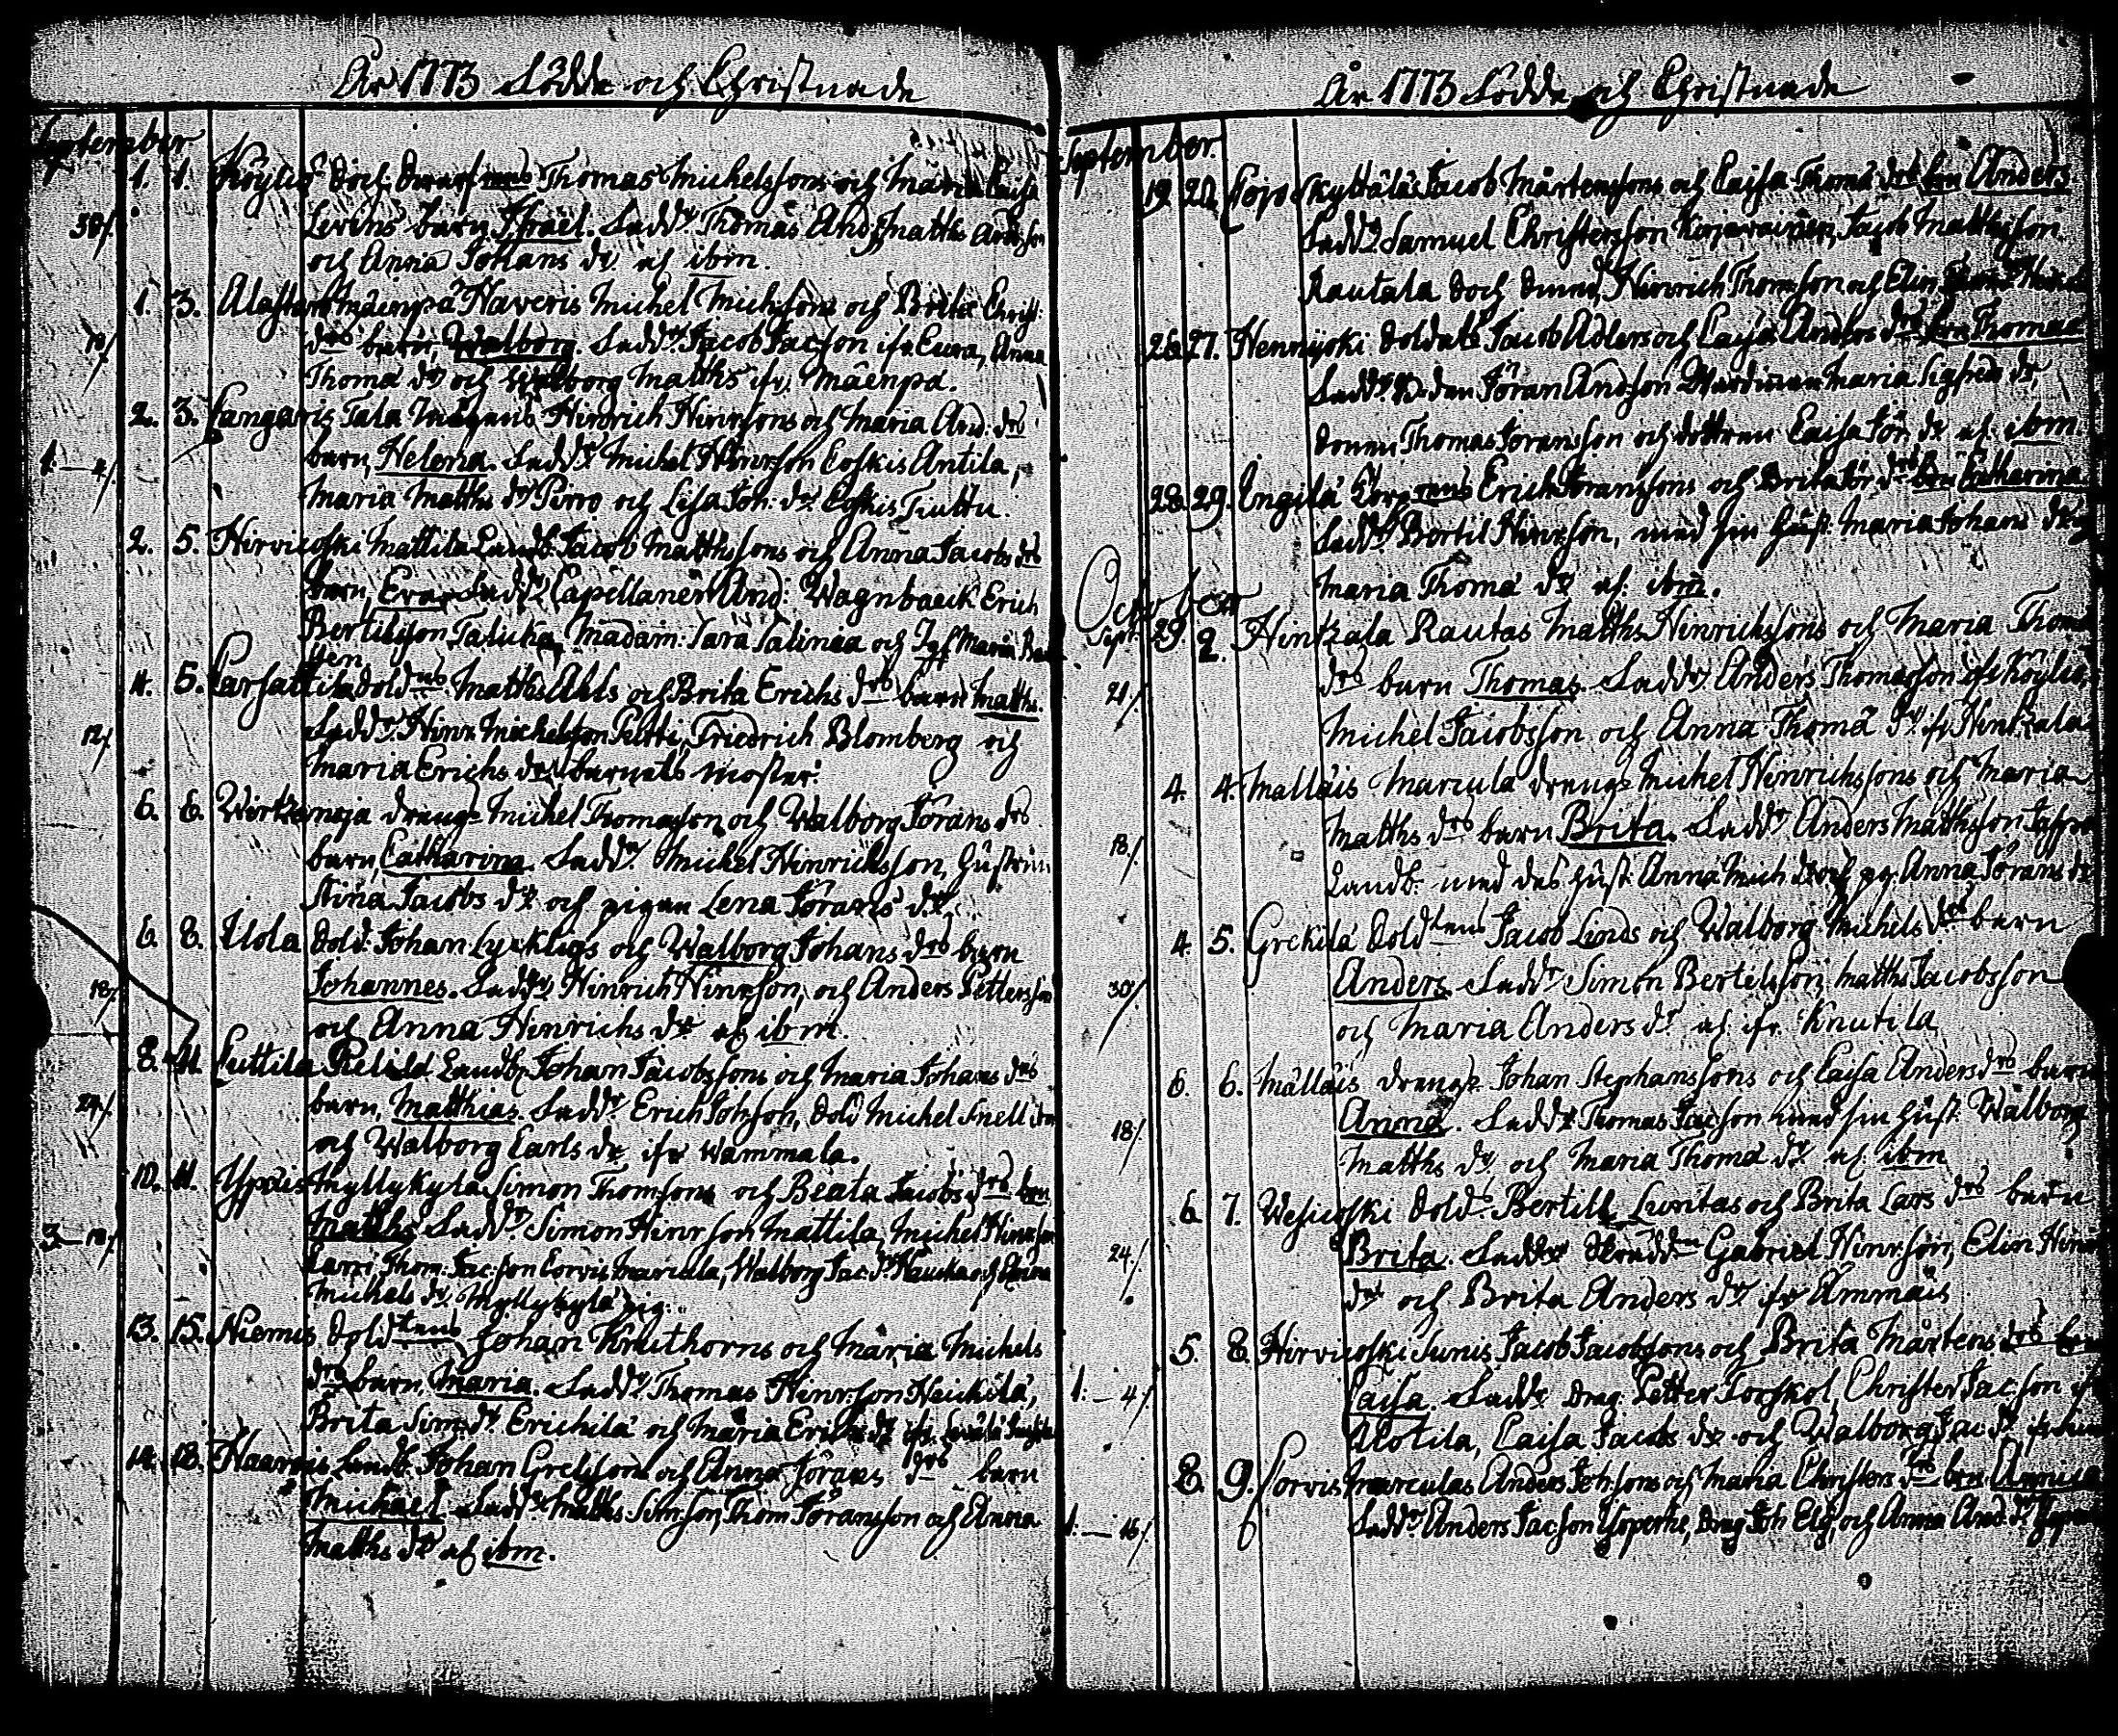 År 1773 Födde och Christnade
September
1. 1. Köylis Thomas Michelssons och Maria Caisa
30/. Levins barn Israel. Fadd: Thomas And: Matths Andsson
och Anna Johans dr af ibm.
1. 3. Alastaro Mäenpä Haveris Michel Michssons och Brita Christ:
drs barn, Walborg. Fadd: Jacob Jacson ifr Eura, Anna
Thoma dr och Walborg Matths ifr. Mäenpä.
2. 3. Cangaris Tala Hinrich Hinrssons och Maria And: drs
1.—4/. barn, Helena. Fadd: Michel Hinrsson Coskis Antila,
Maria Matths dr Pirro och Lisa Joh: dr Coskis Tiuttu.
2. 5. Hirvicoski Mattila Landb. Jacob Matthssons och Anna Jacobs drs
barn, Eva. Fadd: Capellanen And: Wagnbaeck Erich
Bertilsson Talicka, Madam: Sara Salinea och Jgf Maria
4. 5. Carsattila Sold Matths Ahls och Brita Erichs drs barn Matths.
12/. Fadd: Hinr. Michelsson Peltti, Friedrich Blomberg och
Maria Erichs dr barnets moster.
6. 6. Wirtzenoja drengs Michel Thomasson och Walborg Jörans drs
barn, Catharina. Fadd: Michel Hinrichsson, hustrun
Stina Jacobs dr och pigan Lena Jörans dr.
6. 8. Uola Sold. Johan Lyckligs och Walborg Johans drs barn
18/. Johannes. Fadd: Hinrich Hinrsson, och Anders Pettersson
och Anna Hinrichs dr af ibm.
8. 11. Puttila Pelild Landb. Johan Jacobssons och Maria Johans drs
24/. barn, Matthias. Fadd: Erich Johsson, Sold Michel Snell
och Walborg Carls dr ifr Wammala.
10. 11. Ypäis Myllykylä Simon Thomssons och Beata Jacobs drs brn
3—18/. Matths Fadd: Simon Hinrsson Mattila, Michel Hinrsson
Carri, Thom: Jacson Corvis Marcula, Walborg Jac: dr Hauka och Anna
Michels dr Myllykylä pig.
13. 15. Niemis Sold Johan Krutthorns och Maria Michels
drs barn, Maria. Fadd: Thomas Hinrsson Heickilä,
Brita Sim: dr Erichilä och Maria Erichs dr ifr.
14. 18. Haarois Landb. Johan Grelssons och Anna Jörans drs barn
Michaël Fadd: Matths Simsson, Thom Jöransson och Anna
Matths dr af ibm.
År 1773 Födde och Christnade
September.
19 20. Pojo Skyttäläs Jacob Mårtenssons och Caisa Thoma drs brn Anders
Fadd: Samuel Christersson Kirjavainen, Jacob Matthsson
Rautala och Hinrich Thomsson och Elin
26. 27. Hennijoki Soldats Jacob Adlers och Caisa Anders drs brn Thomas
Fadd: Jöran Andsson Maria Sigfreds dr,
sonen Thomas Jöransson och dottren Caisa Jör: dr af ibm
28. 29. Ingilä Erich Jöranssons och Brita Jör: drs brn Catharina
Fadd: Bertil Hinrsson, med sin hust. Maria Johans dr
Maria Thoma dr af ibm.
October
Sept. 29. 2. Hinkala Rautas Matths Hinrichssons och Maria Thoma
21/. drs barn Thomas. Fadd: Anders Thomasson ifr Köyliö
Michel Jacobsson och Anna Thoma dr ifr Hinkala
4. 4. Mälläis Marcula drengs Michel Hinrichssons och Maria
18/. Matths drs barn Brita. Fadd: Anders Matthsson
Landb. med des hust. Anna Mich dr och pig. Anna Jörans dr
4. 5. Grekilä Sold Jacob Linds och Walborg Michels drs barn
30/. Anders Fadd: Simon Bertilsson, Matths Jacobsson
och Maria Anders dr af ifr. Knutila
6. 6. Mälläis drengs Johan Stephanssons och Caisa Anders drs barn
18/. Anna. Fadd: Thomas Jacson med sin hust Walborg
Matths dr och Maria Thoma dr af ibm
6. 7. Wesicoski Sold. Bertill Luritas och Brita Lars drs barn
24/. Brita. Fadd: Gabriel Hinrsson, Elin Hinrs
dr och Brita Anders dr ifr Ämmäis
5. 8. Hirvicoski Sunis Jacob Jacobssons och Brita Mårtens drs brn
1.—4/. Caisa. Fadd: Drag. Petter Forskol, Christer Jacson
Uotila, Caisa Jacobs dr och Walborg Jac: dr
8. 9. Corvis Marculas Anders Johssons och Maria Christers drs brn Annica
1.—16/. Fadd: Anders Jacson Yöperhe, Drag Joh Elg, och Anna And: dr